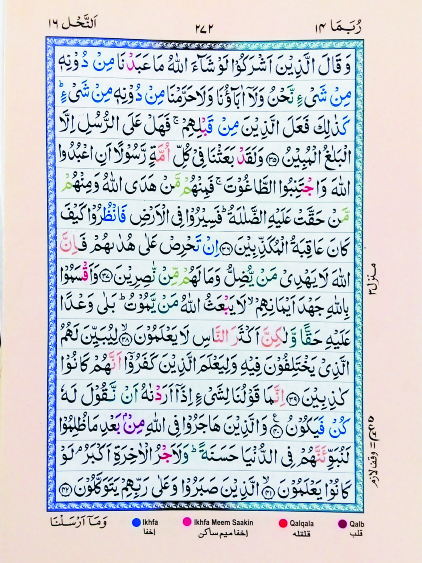 رُبَمَا ١٤
٢٧٢
اَلنَّحْل ١٦
وَقَالَ الَّذِيْنَ اَشْرَكُوْا لَوْ شَآءَ اللّٰهُ مَا عَبَدْنَا مِنْ دُوْنِهٖ
مِنْ شَیْءٍ نَّحْنُ وَلَاۤ اٰبَآؤُنَا وَلَا حَرَّمْنَا مِنْ دُوْنِهٖ مِنْ شَیْءٍ ؕ
كَذٰلِكَ فَعَلَ الَّذِيْنَ مِنْ قَبْلِهِمْ ۚ فَهَلْ عَلَی الرُّسُلِ اِلَّا
الْبَلٰغُ الْمُبِيْنُ ﴿٣٥﴾ وَلَقَدْ بَعَثْنَا فِیْ كُلِّ اُمَّةٍ رَّسُوْلًا اَنِ اعْبُدُوا
اللّٰهَ وَاجْتَنِبُوا الطَّاغُوْتَ ۚ فَمِنْهُمْ مَّنْ هَدَی اللّٰهُ وَمِنْهُمْ
مَّنْ حَقَّتْ عَلَيْهِ الضَّلٰلَةُ ؕ فَسِيْرُوْا فِی الْاَرْضِ فَانْظُرُوْا كَيْفَ
كَانَ عَاقِبَةُ الْمُكَذِّبِيْنَ ﴿٣٦﴾ اِنْ تَحْرِصْ عَلٰی هُدٰىهُمْ فَاِنَّ
اللّٰهَ لَا يَهْدِیْ مَنْ يُّضِلُّ وَمَا لَهُمْ مِّنْ نّٰصِرِيْنَ ﴿٣٧﴾ وَاَقْسَمُوْا
بِاللّٰهِ جَهْدَ اَيْمَانِهِمْ ۙ لَا يَبْعَثُ اللّٰهُ مَنْ يَّمُوْتُ ؕ بَلٰی وَعْدًا
عَلَيْهِ حَقًّا وَّلٰكِنَّ اَكْثَرَ النَّاسِ لَا يَعْلَمُوْنَ ﴿٣٨﴾ لِيُبَيِّنَ لَهُمُ
الَّذِیْ يَخْتَلِفُوْنَ فِيْهِ وَلِيَعْلَمَ الَّذِيْنَ كَفَرُوْۤا اَنَّهُمْ كَانُوْا
كٰذِبِيْنَ ﴿٣٩﴾ اِنَّمَا قَوْلُنَا لِشَیْءٍ اِذَاۤ اَرَدْنٰهُ اَنْ نَّقُوْلَ لَهٗ
كُنْ فَيَكُوْنُ ﴿٤٠﴾ وَالَّذِيْنَ هَاجَرُوْا فِی اللّٰهِ مِنْۢ بَعْدِ مَا ظُلِمُوْا
لَنُبَوِّئَنَّهُمْ فِی الدُّنْيَا حَسَنَةً ؕ وَلَاَجْرُ الْاٰخِرَةِ اَكْبَرُ ۘ لَوْ
كَانُوْا يَعْلَمُوْنَ ﴿٤١﴾ الَّذِيْنَ صَبَرُوْا وَعَلٰی رَبِّهِمْ يَتَوَكَّلُوْنَ ﴿٤٢﴾
منزل٣
وقف لازم
وَمَاۤ اَرْسَلْنَا
Ikhfa
اخفا
Ikhfa Meem Saakin
اخفا میم ساکن
Qalqala
قلقله
Qalb
قلب